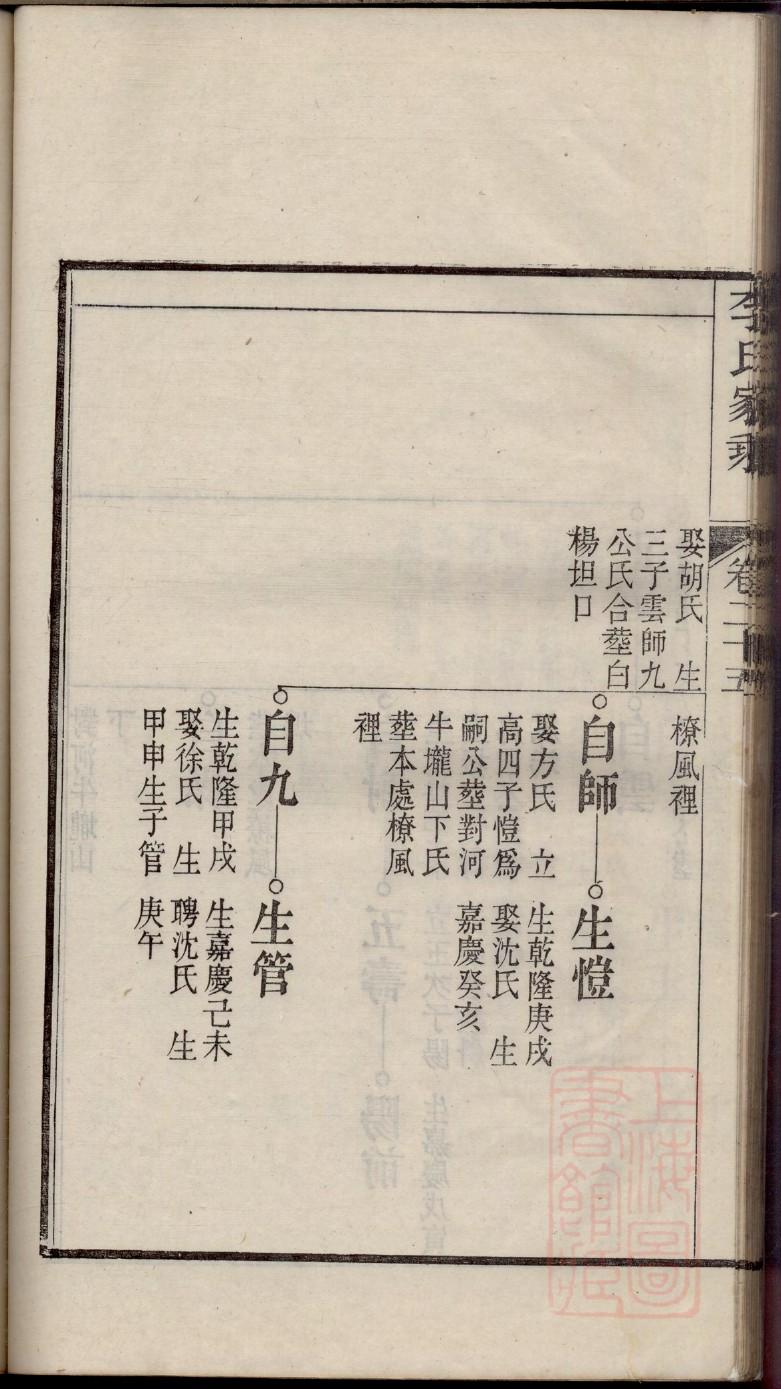 李氏家乘
卷二十五
娶胡氏　生
三子雲師九
公氏合塟白
楊坦口
橑風裡
自師
娶方氏　立
高四子愷爲
嗣公塟對河
牛壠山下氏
塟本處橑風
裡
生愷
生乾隆庚戌
娶沈氏　生
嘉慶癸亥
自九
生乾隆甲戌
娶徐氏　生
甲申生子管
生管
生嘉慶己未
聘沈氏　生
庚午
上海圖
書館藏